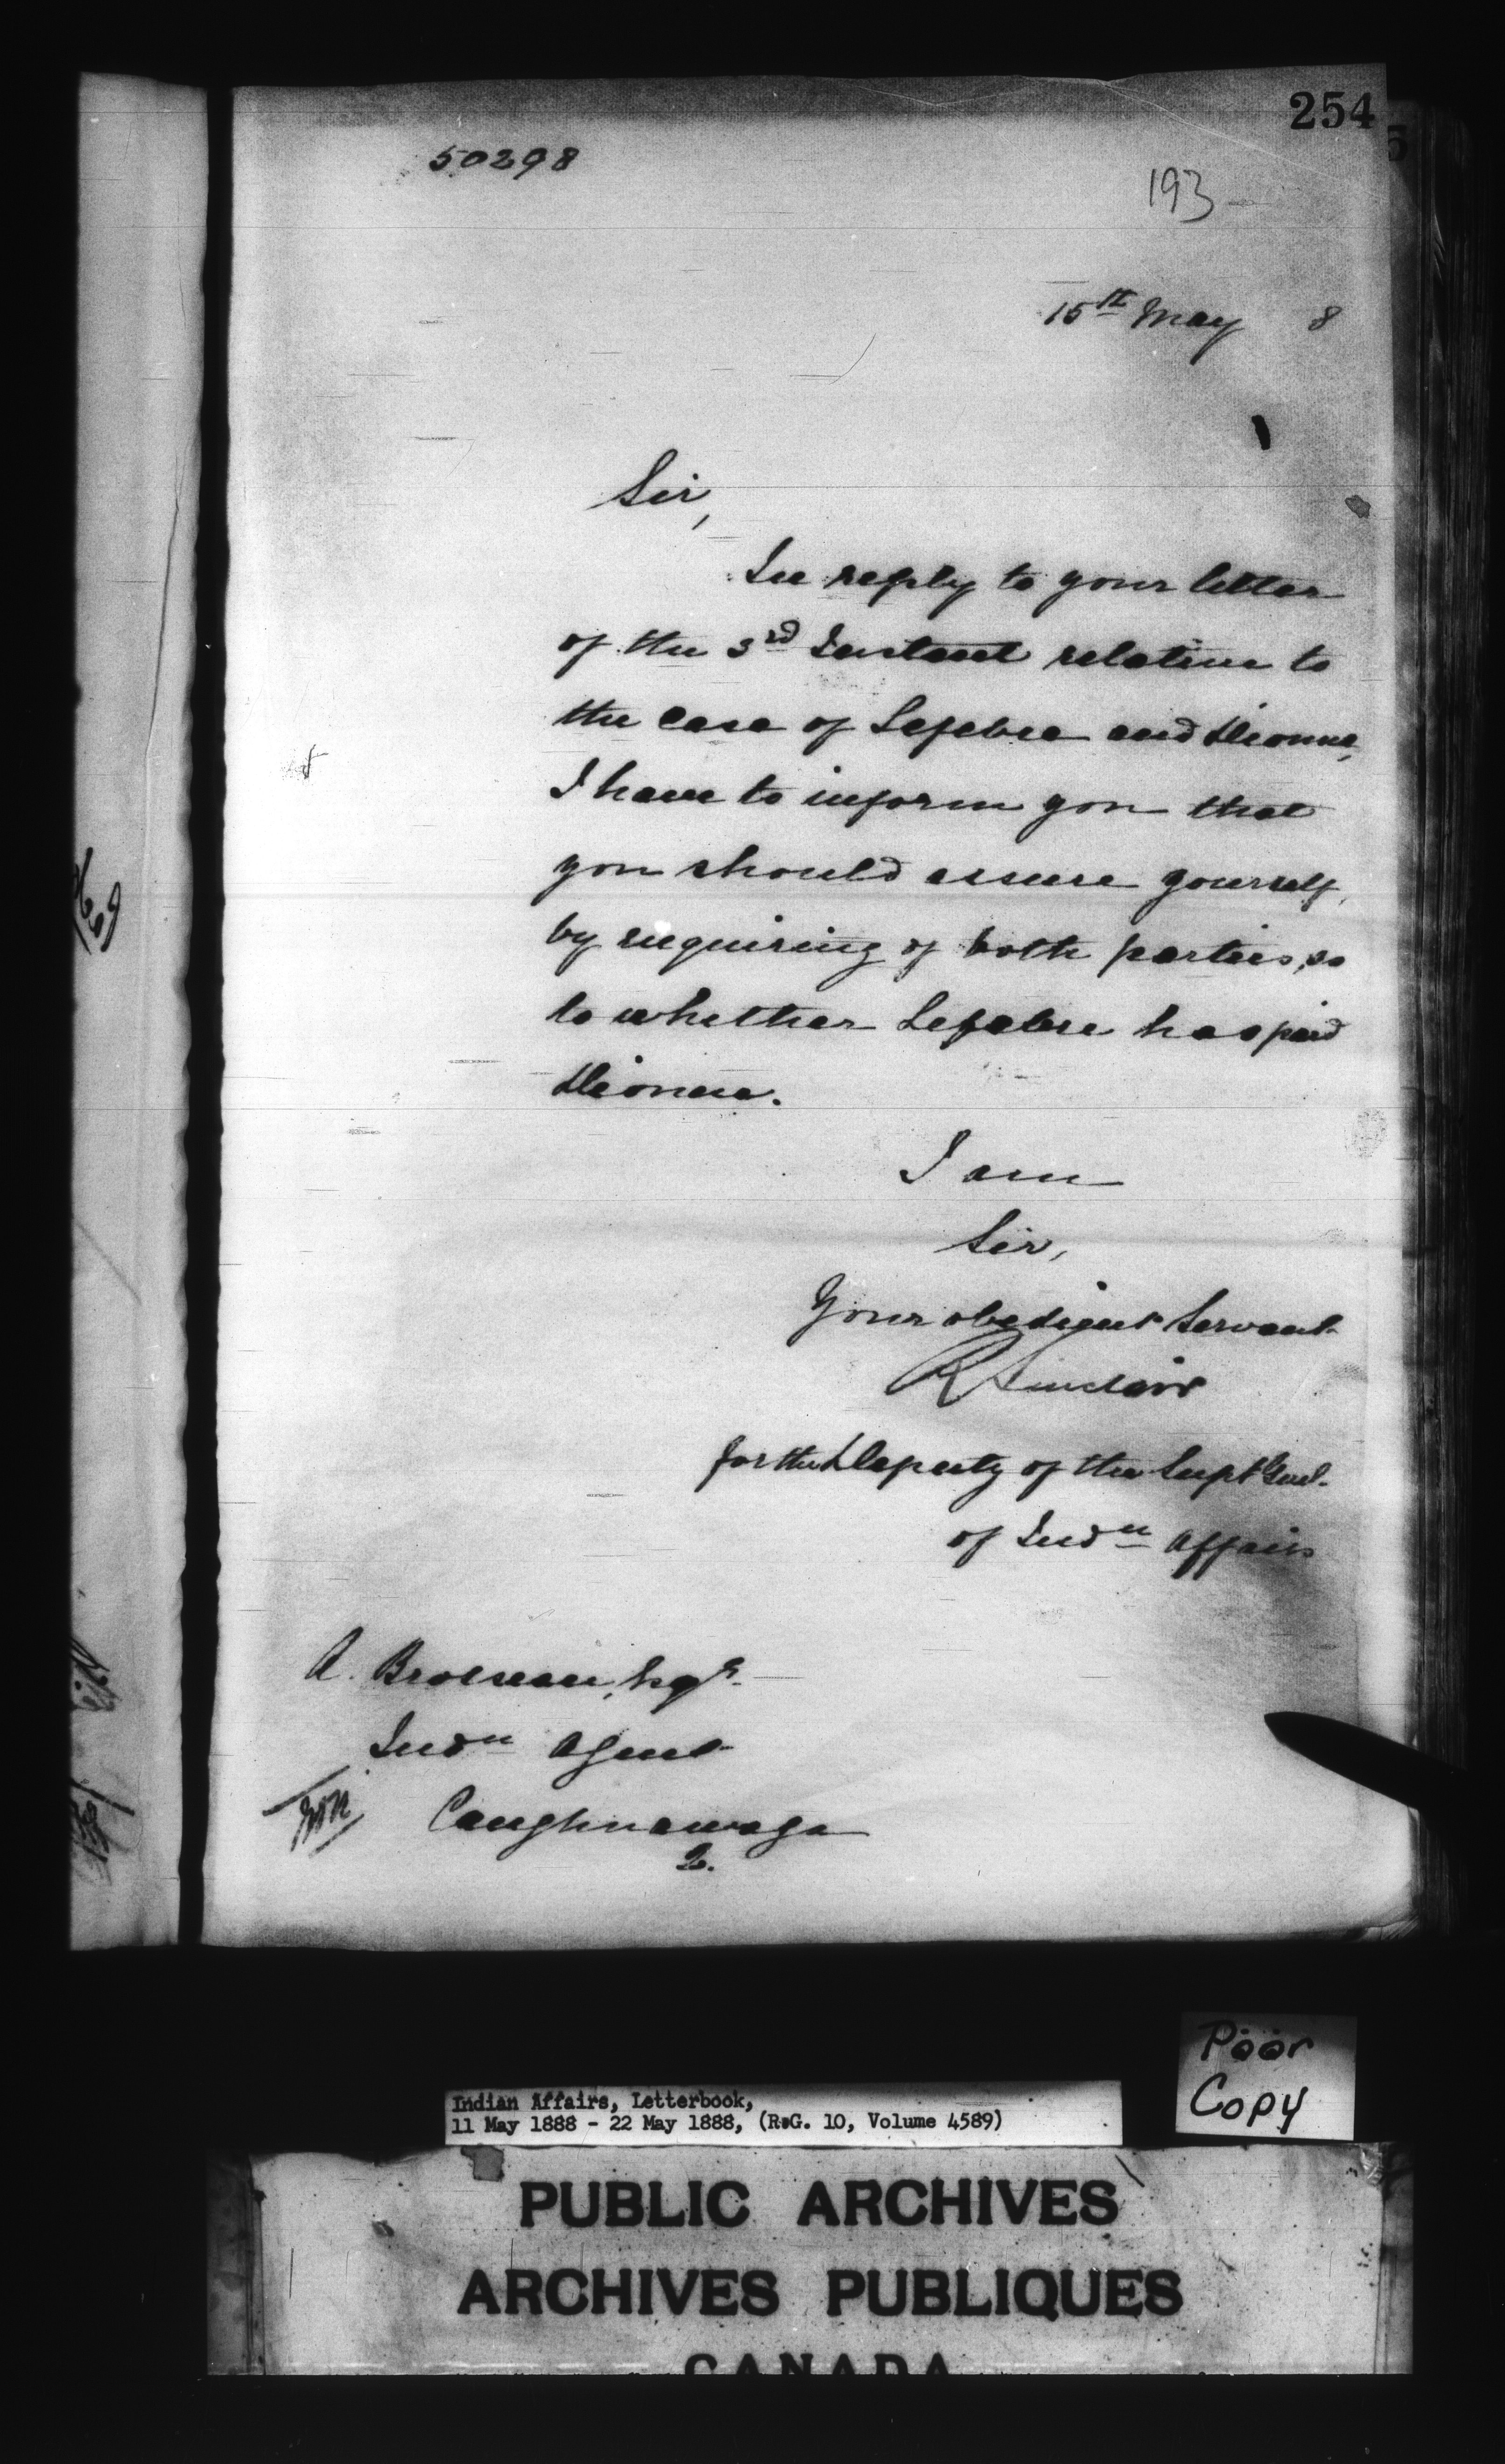 254
50298
193
15th May 8
Sir,
In reply to your letter
of the 3rd Instant relative to
the case of Lefebre and Dionne,
I have to inform you that
you should assure yourself,
by enquiring of both parties, as
to whether Lefebre has paid
Dionne.
I am
Sir,
Your obedient Servant
R Sinclair
for the Deputy of the Supt Genl.
of Indn Affairs
A. Brosseau, Esqr.
Indn Agent
Caughnawaga
Q.
Poor
Copy
Indian Affairs, Letterbook,
11 May 1888 - 22 May 1888, (R.G. 10, Volume 4589)
PUBLIC ARCHIVES
ARCHIVES PUBLIQUES
CANADA